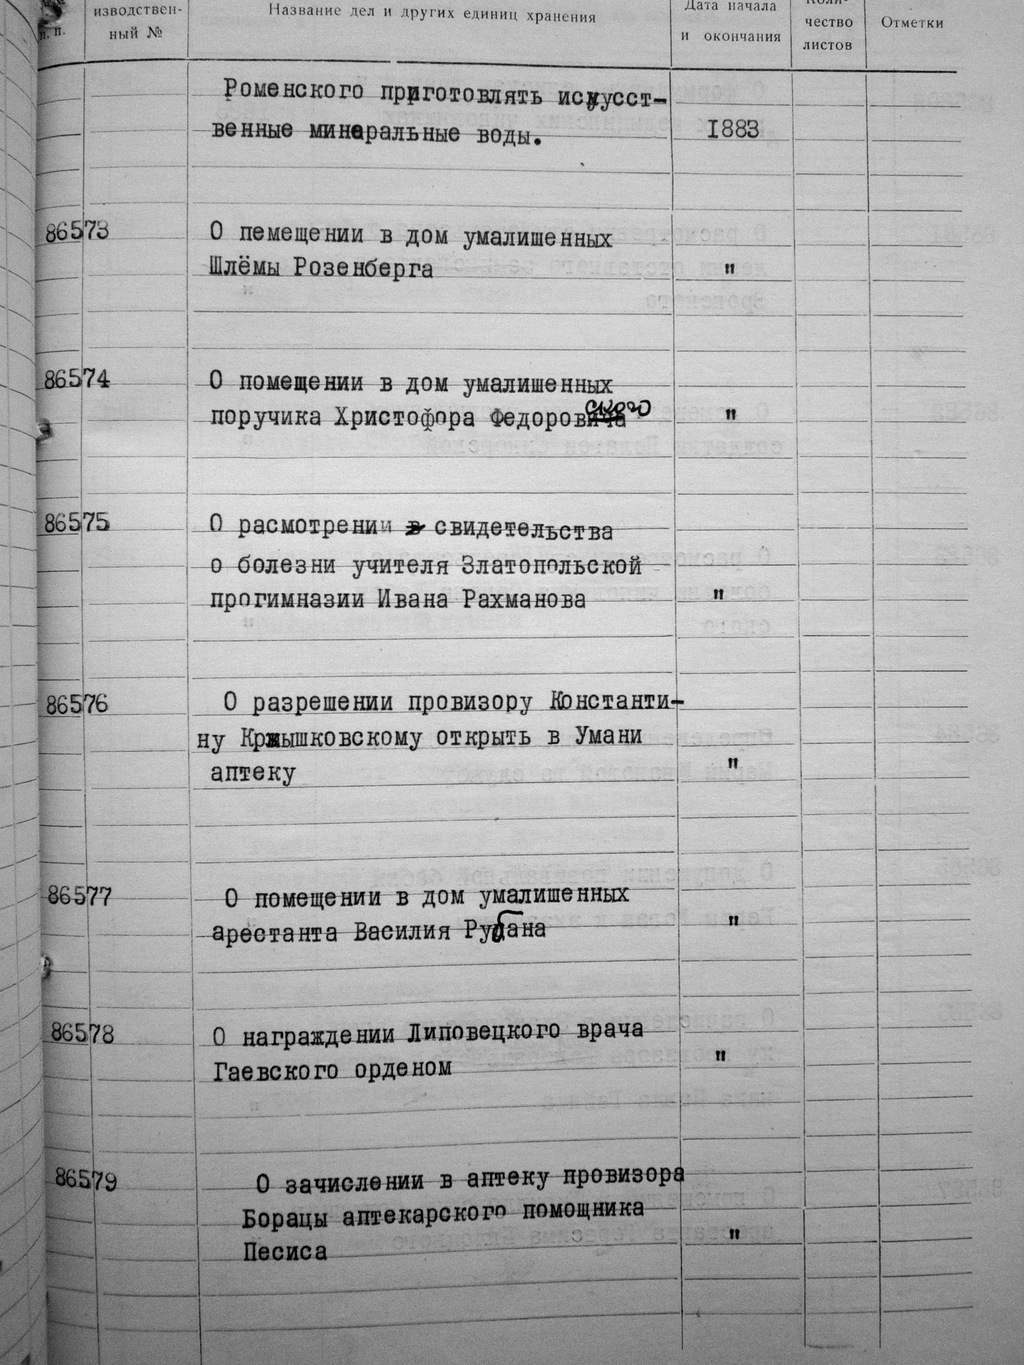 п. п.
изводствен-
ный №
Название дел и других единиц хранения
Дата начала
и окончания
Коли-
чество
листов
Отметки
Роменского приготовлять искусст-
венные минеральные воды.
1883
86573
О пемещении в дом умалишенных
Шлёмы Розенберга
"
86574
О помещении в дом умалишенных
поручика Христофора Федоровского
"
86575
О расмотрении свидетельства
о болезни учителя Златопольской
прогимназии Ивана Рахманова
"
86576
О разрешении провизору Константи-
ну Кржышковскому открыть в Умани
аптеку
"
86577
О помещении в дом умалишенных
арестанта Василия Рубана
"
86578
О награждении Липовецкого врача
Гаевского орденом
"
86579
О зачислении в аптеку провизора
Борацы аптекарского помощника
Песиса
"